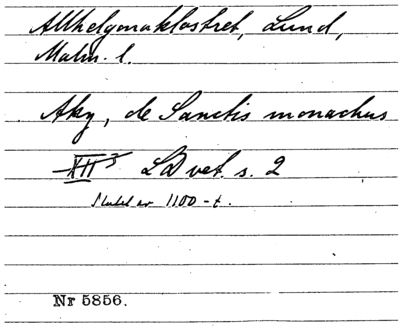 Allhelgonaklostret, Lund,
Malm. l.
Aky, de Sanctis monachus
XII 3 LD vet. s. 2
Slutet av 1100-t.
Nr 5856.